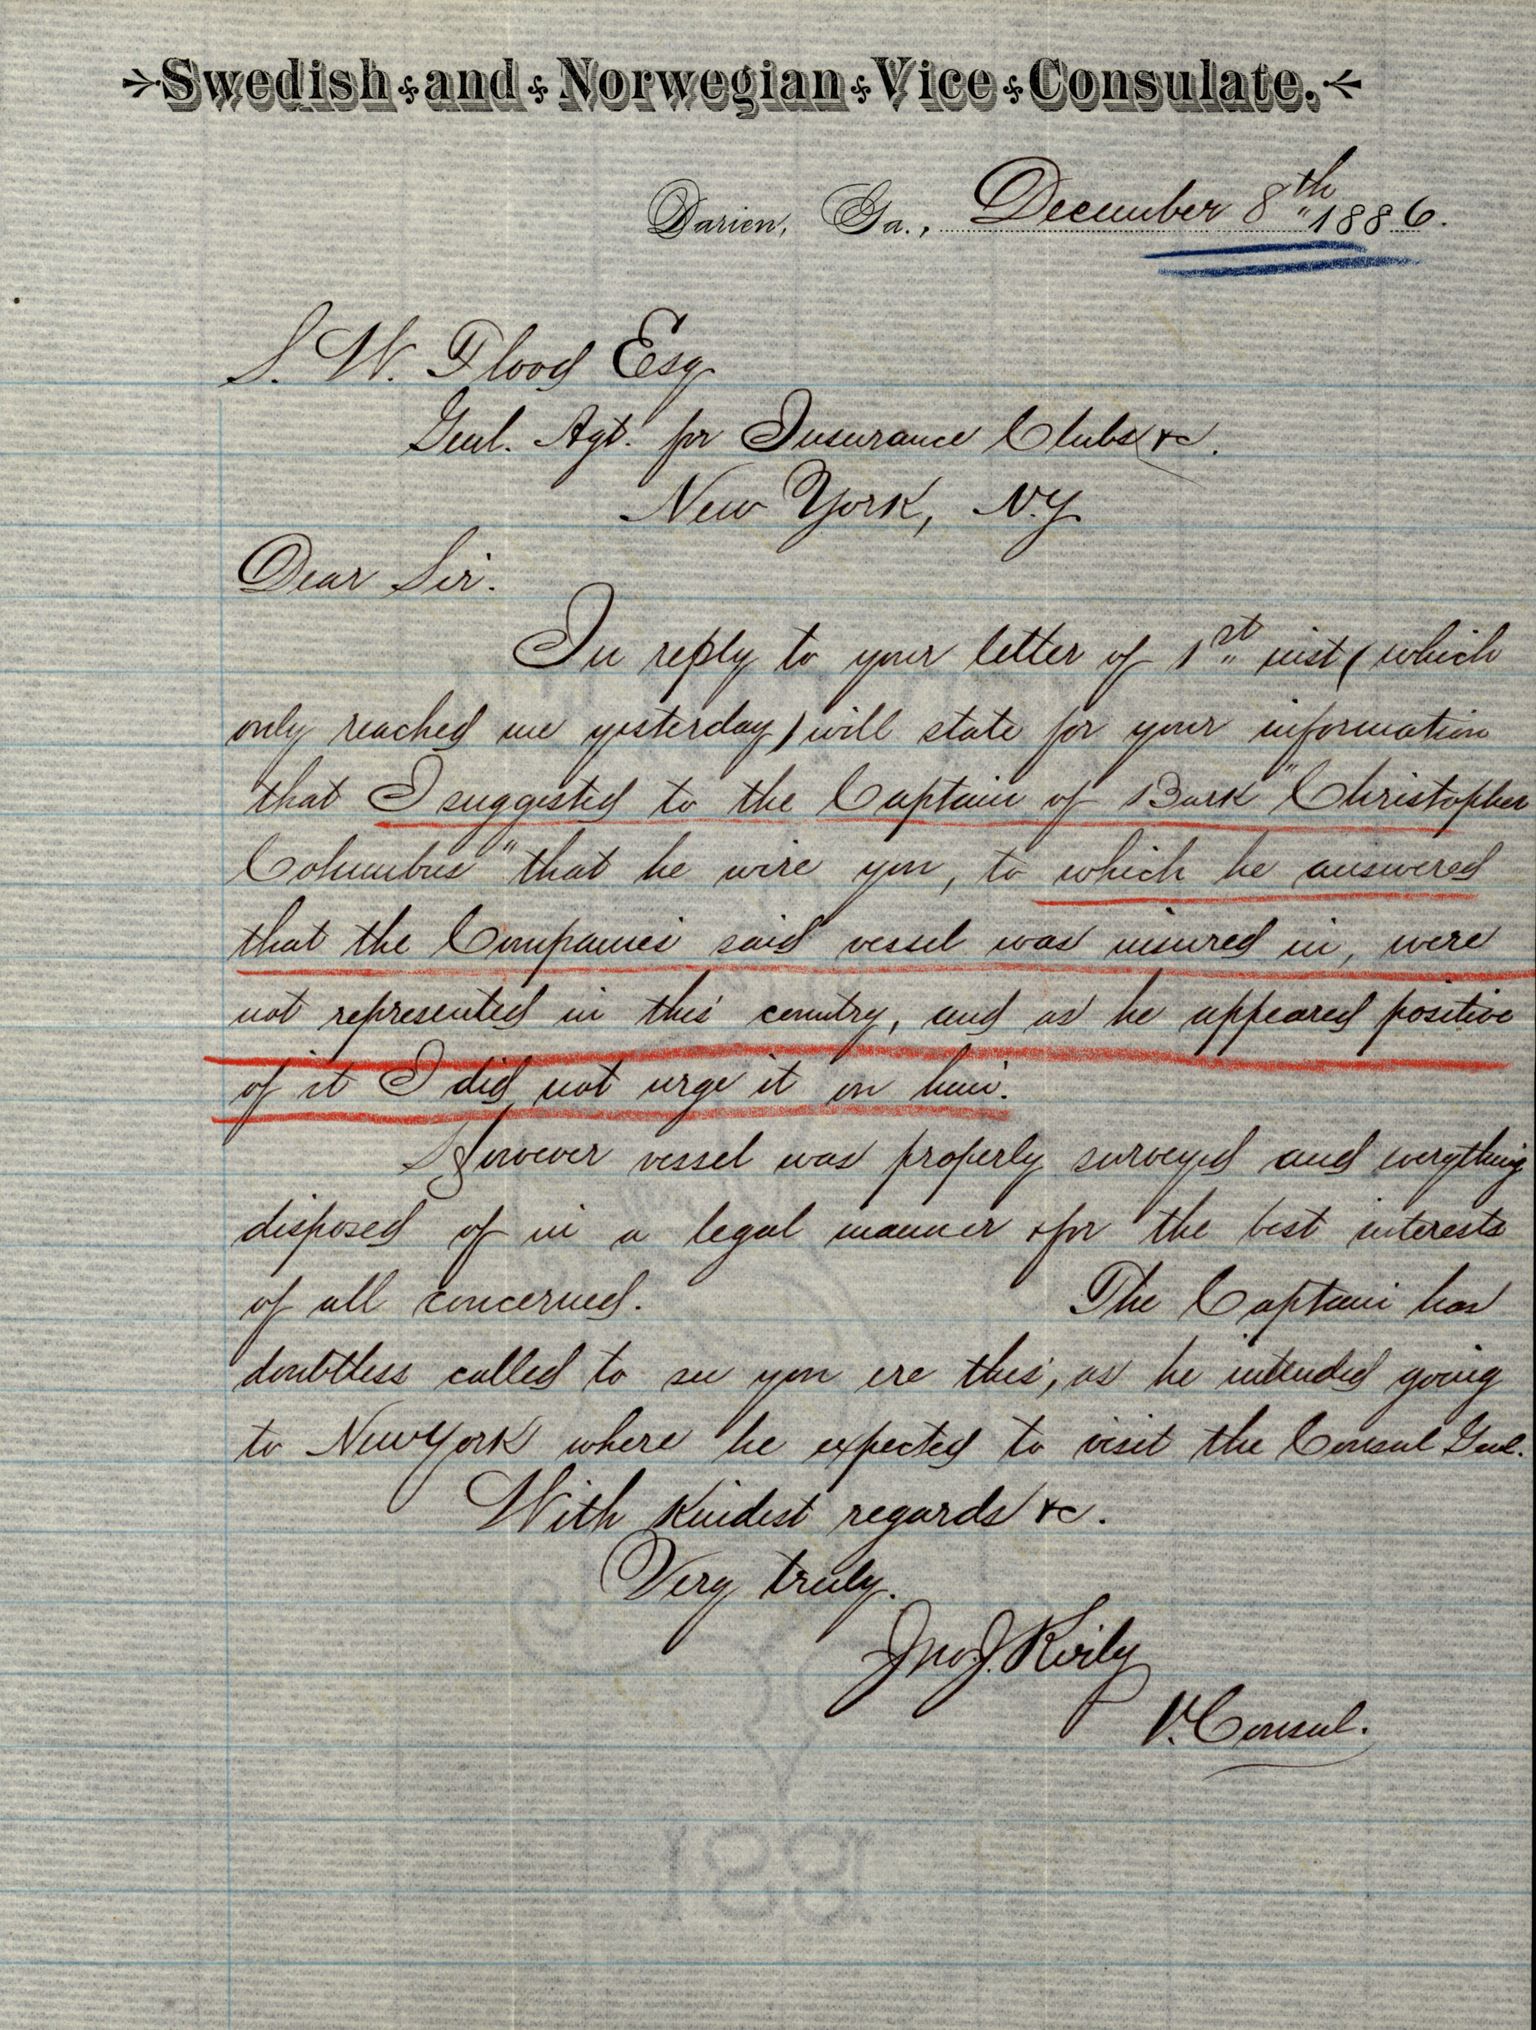 Swedish and Norwegian Vice Consulate.
Darien, Ga., December 8th 1886.
S. W. Flood Esq
Genl. Agt. for Insurance Clubs &c.
New York, N.Y
Dear Sir.
In reply to your letter of 1st inst (which
only reached me yesterday) will state for your information
that I suggested to the Captain of Bark "Christopher
Columbus" that he wire you, to which he answered
that the Companies said vessel was insured in, were
not represented in this country, and as he appeared positive
of it I did not urge it on him.
However vessel was properly surveyed and everything
disposed of in a legal manner & for the best interests
of all concerned. The Captain has
doubtless called to see you ere this, as he intended going
to New York where he expected to visit the Consul Genl.
With Kindest regards &c.
Very truly.
Jno. J.
V. Consul.
1881